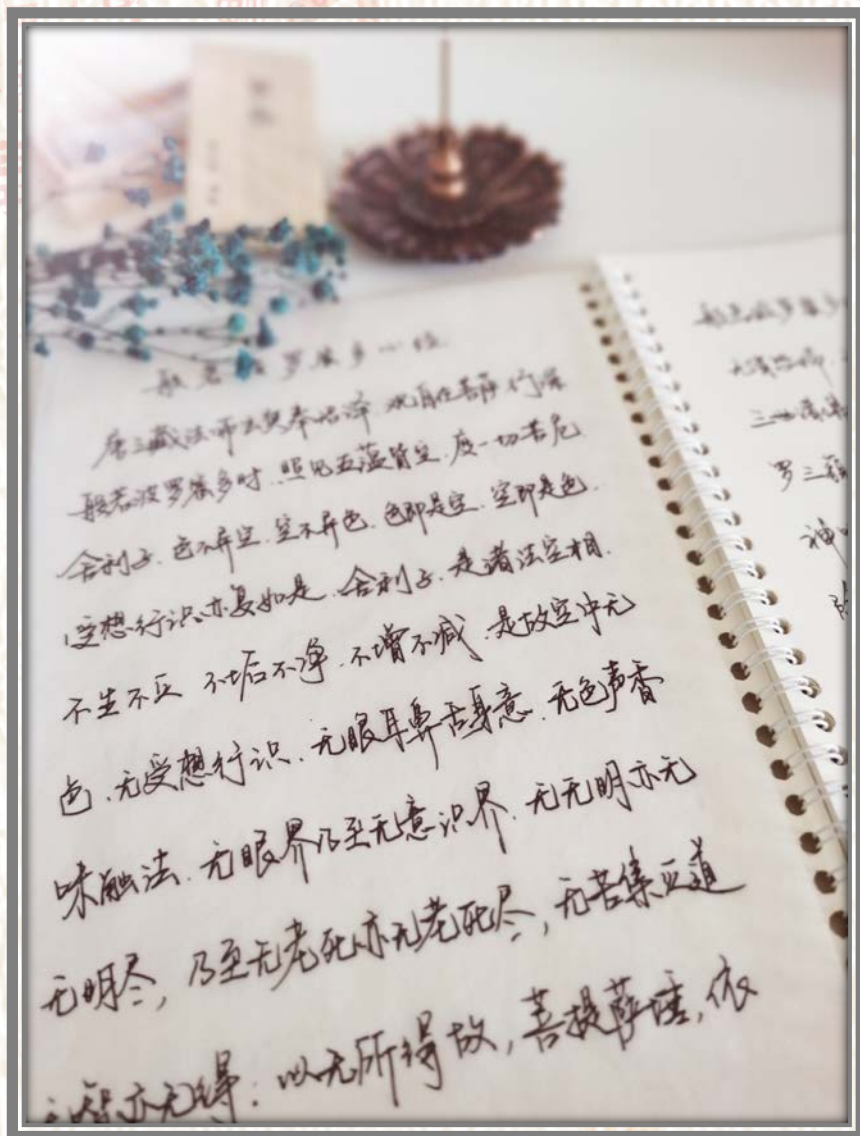 般若波罗蜜多心经
唐三藏法师玄奘奉诏译 观自在菩萨 行深
般若波罗蜜多时.照见五蕴皆空.度一切苦厄
舍利子.色不异空.空不异色.色即是空.空即是色.
受想行识亦复如是.舍利子.是诸法空相.
不生不灭 不垢不净.不增不减.是故空中无
色.无受想行识.无眼耳鼻舌身意.无色声香
味触法.无眼界乃至无意识界.无无明亦无
无明尽,乃至无老死亦无老死尽,无苦集灭道
无智亦无得.以无所得故,菩提萨埵,依
般若波罗蜜多
三世诸佛
罗三藐